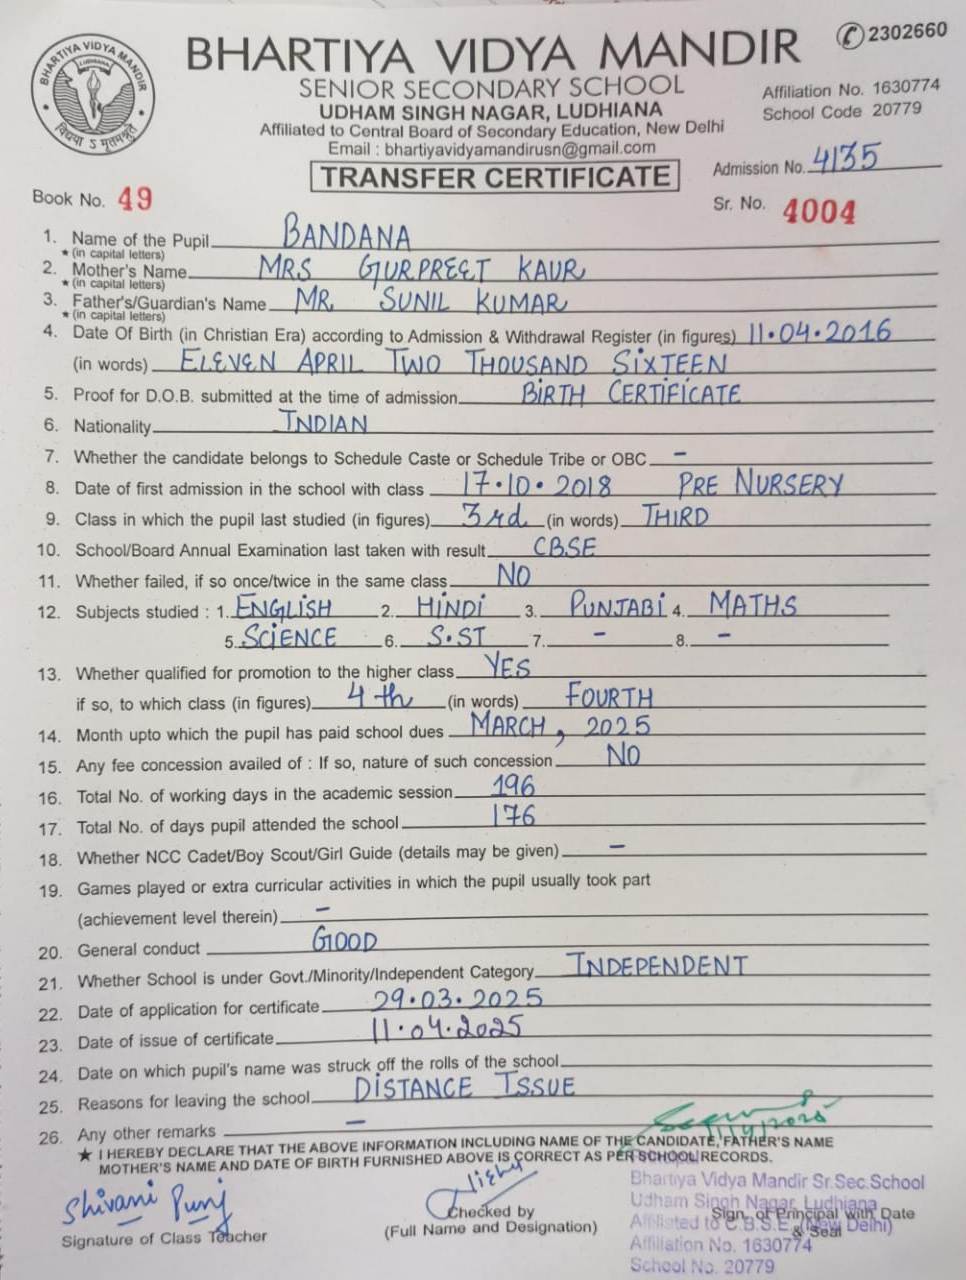 BHARTIYA VIDYA MANDIR LUDHIANA
विद्यया ऽ मृतमश्नुते
✆2302660
BHARTIYA VIDYA MANDIR
SENIOR SECONDARY SCHOOL
UDHAM SINGH NAGAR, LUDHIANA
Affiliated to Central Board of Secondary Education, New Delhi
Email : bhartiyavidyamandirusn@gmail.com
Affiliation No. 1630774
School Code 20779
TRANSFER CERTIFICATE
Admission No. 4135
Book No. 49
Sr. No. 4004
1. Name of the Pupil BANDANA
* (in capital letters)
2. Mother's Name MRS GURPREET KAUR
* (in capital letters)
3. Father's/Guardian's Name MR. SUNIL KUMAR
* (in capital letters)
4. Date Of Birth (in Christian Era) according to Admission & Withdrawal Register (in figures) 11.04.2016
(in words) ELEVEN APRIL TWO THOUSAND SIXTEEN
5. Proof for D.O.B. submitted at the time of admission BIRTH CERTIFICATE
6. Nationality INDIAN
7. Whether the candidate belongs to Schedule Caste or Schedule Tribe or OBC –
8. Date of first admission in the school with class 17.10.2018 PRE NURSERY
9. Class in which the pupil last studied (in figures) 3rd (in words) THIRD
10. School/Board Annual Examination last taken with result CBSE
11. Whether failed, if so once/twice in the same class NO
12. Subjects studied : 1. ENGLISH 2. HINDI 3. PUNJABI 4. MATHS
5. SCIENCE 6. S.ST 7. – 8. –
13. Whether qualified for promotion to the higher class YES
if so, to which class (in figures) 4th (in words) FOURTH
14. Month upto which the pupil has paid school dues MARCH, 2025
15. Any fee concession availed of : If so, nature of such concession NO
16. Total No. of working days in the academic session 196
17. Total No. of days pupil attended the school 176
18. Whether NCC Cadet/Boy Scout/Girl Guide (details may be given) –
19. Games played or extra curricular activities in which the pupil usually took part
(achievement level therein) –
20. General conduct GOOD
21. Whether School is under Govt./Minority/Independent Category INDEPENDENT
22. Date of application for certificate 29.03.2025
23. Date of issue of certificate 11.04.2025
24. Date on which pupil's name was struck off the rolls of the school
25. Reasons for leaving the school DISTANCE ISSUE
26. Any other remarks –
★ I HEREBY DECLARE THAT THE ABOVE INFORMATION INCLUDING NAME OF THE CANDIDATE, FATHER'S NAME
MOTHER'S NAME AND DATE OF BIRTH FURNISHED ABOVE IS CORRECT AS PER SCHOOL RECORDS.
Shivani Punj
Signature of Class Teacher
Checked by
(Full Name and Designation)
Bhartiya Vidya Mandir Sr.Sec.School
Udham Singh Nagar, Ludhiana
Sign. of Principal with Date
Affiliated to C.B.S.E. (New Delhi)
& Seal
Affiliation No. 1630774
School No. 20779